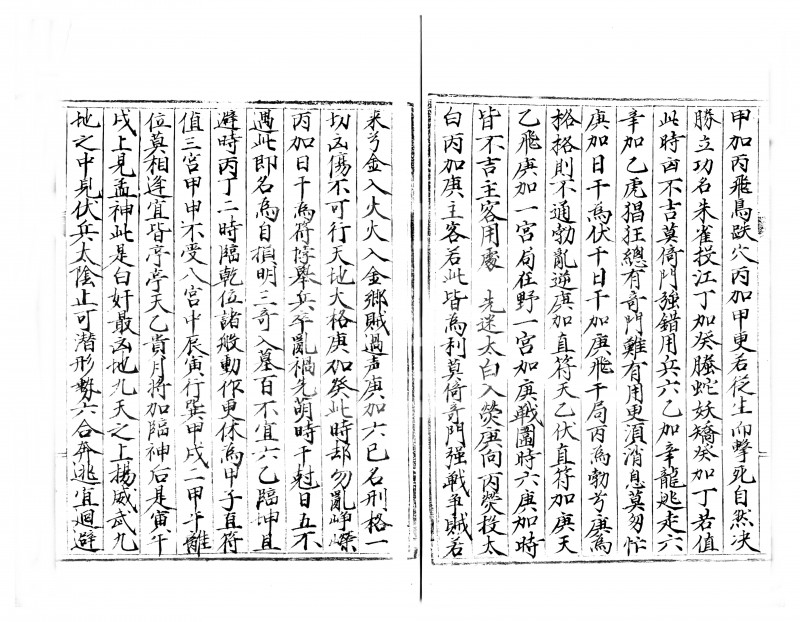 甲加丙飛鳥跌穴丙加甲更若從生向擊死自然決
勝立功名朱雀投江丁加癸螣蛇妖矯癸加丁若值
此時凶不吉莫倚門強錯用兵六乙加辛龍逃走六
辛加乙虎猖狂總有奇門難有用更須消息莫匆忙
庚加日干為伏干日干加庚飛干局丙為勃兮庚為
格格則不通勃亂逆庚加直符天乙伏直符加庚天
乙飛庚加一宮局在野一宮加庚戰國時六庚加時
皆不吉主客用 先迷太白入熒庚向丙熒投太
白丙加庚主客若此皆為利莫倚奇門强戰爭賊若
来兮金入火火入金鄉賊過声庚加六己名刑格一
切凶傷不可行天地大格庚加癸此時却勿亂崢嶸
丙加日干為符悖舉兵平亂禍先萌時干尅日五不
遇此即名為自損明三奇入墓百不宜六乙臨坤且
避時丙丁二時臨乾位諸般動作更休為甲子直符
值三宮甲申不受八宮中辰寅行巽甲戌二甲午離
位莫相逢宜皆亭亭天乙貴月將加臨神后是寅午
戌上見孟神此是白奸最凶地九天之上揚威武九
地之中見伏兵太陰止可潛形勢六合奔逃宜迴避